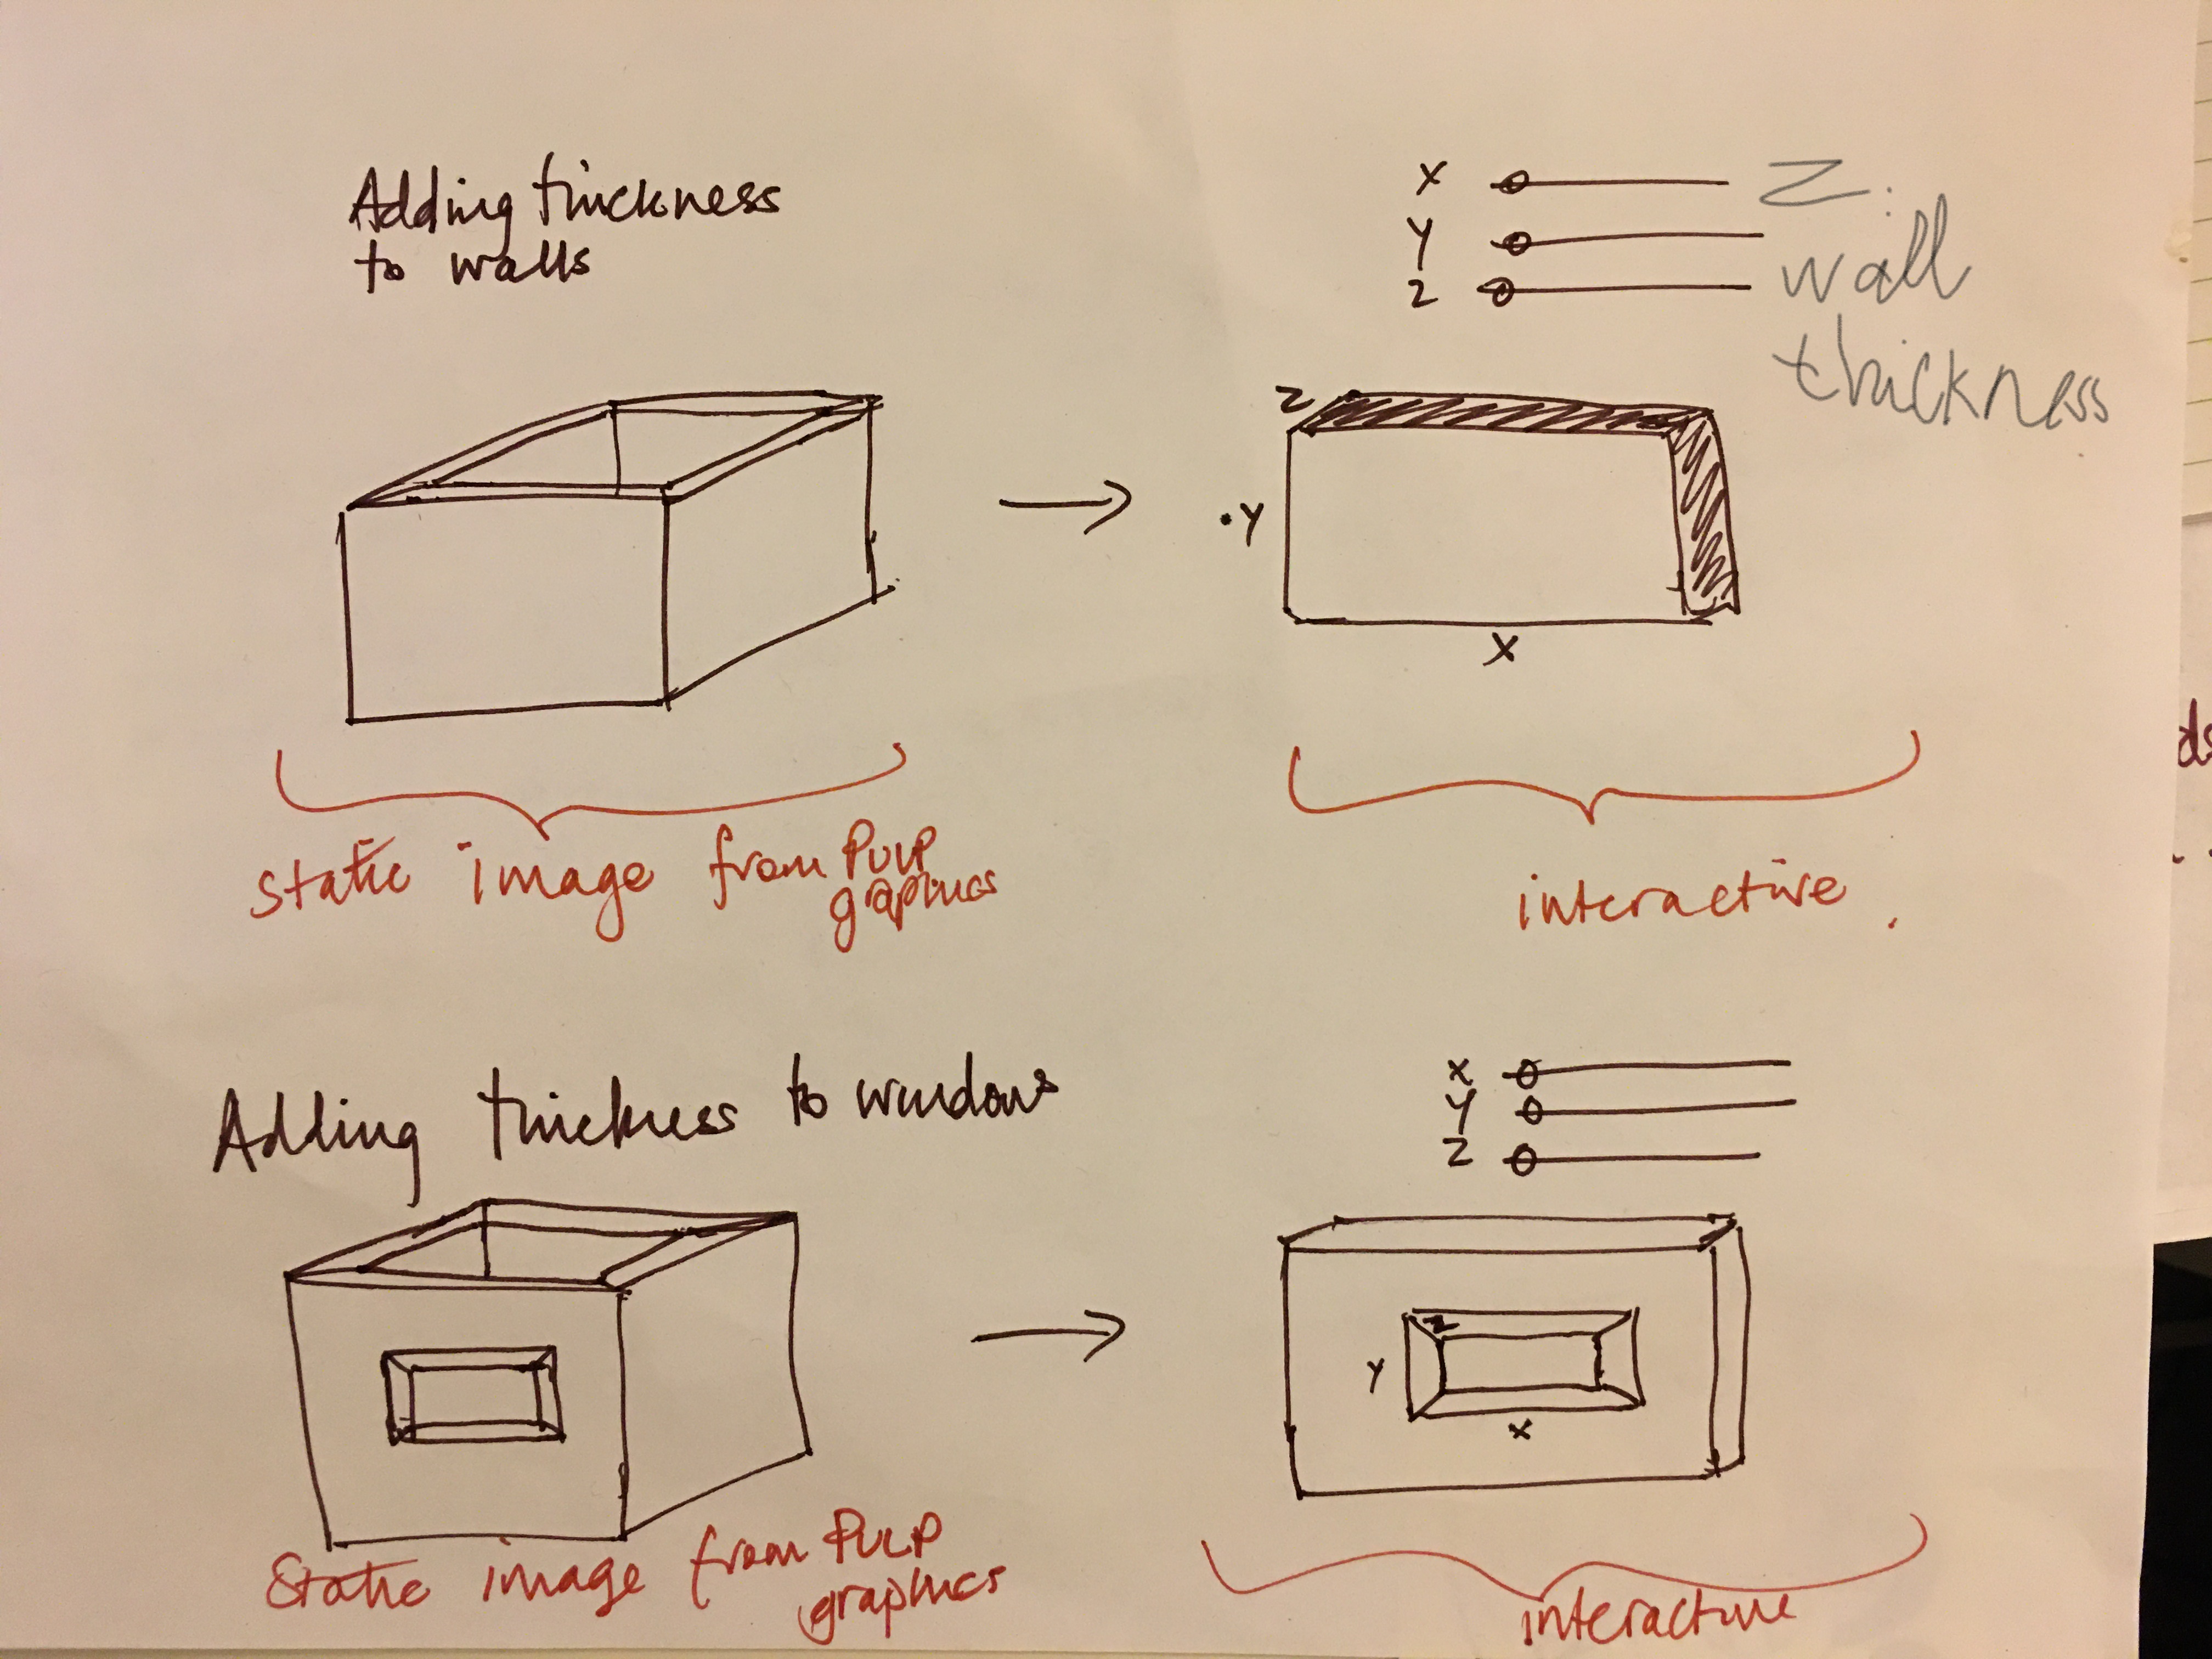 Adding thickness
to walls
X
Y
Z
Z:
wall
thickness
Z
Y
X
static image from PULP
graphics
interactive.
Adding thickness to windows
X
Y
Z
Z
Y
X
Static image from PULP
graphics
interactive